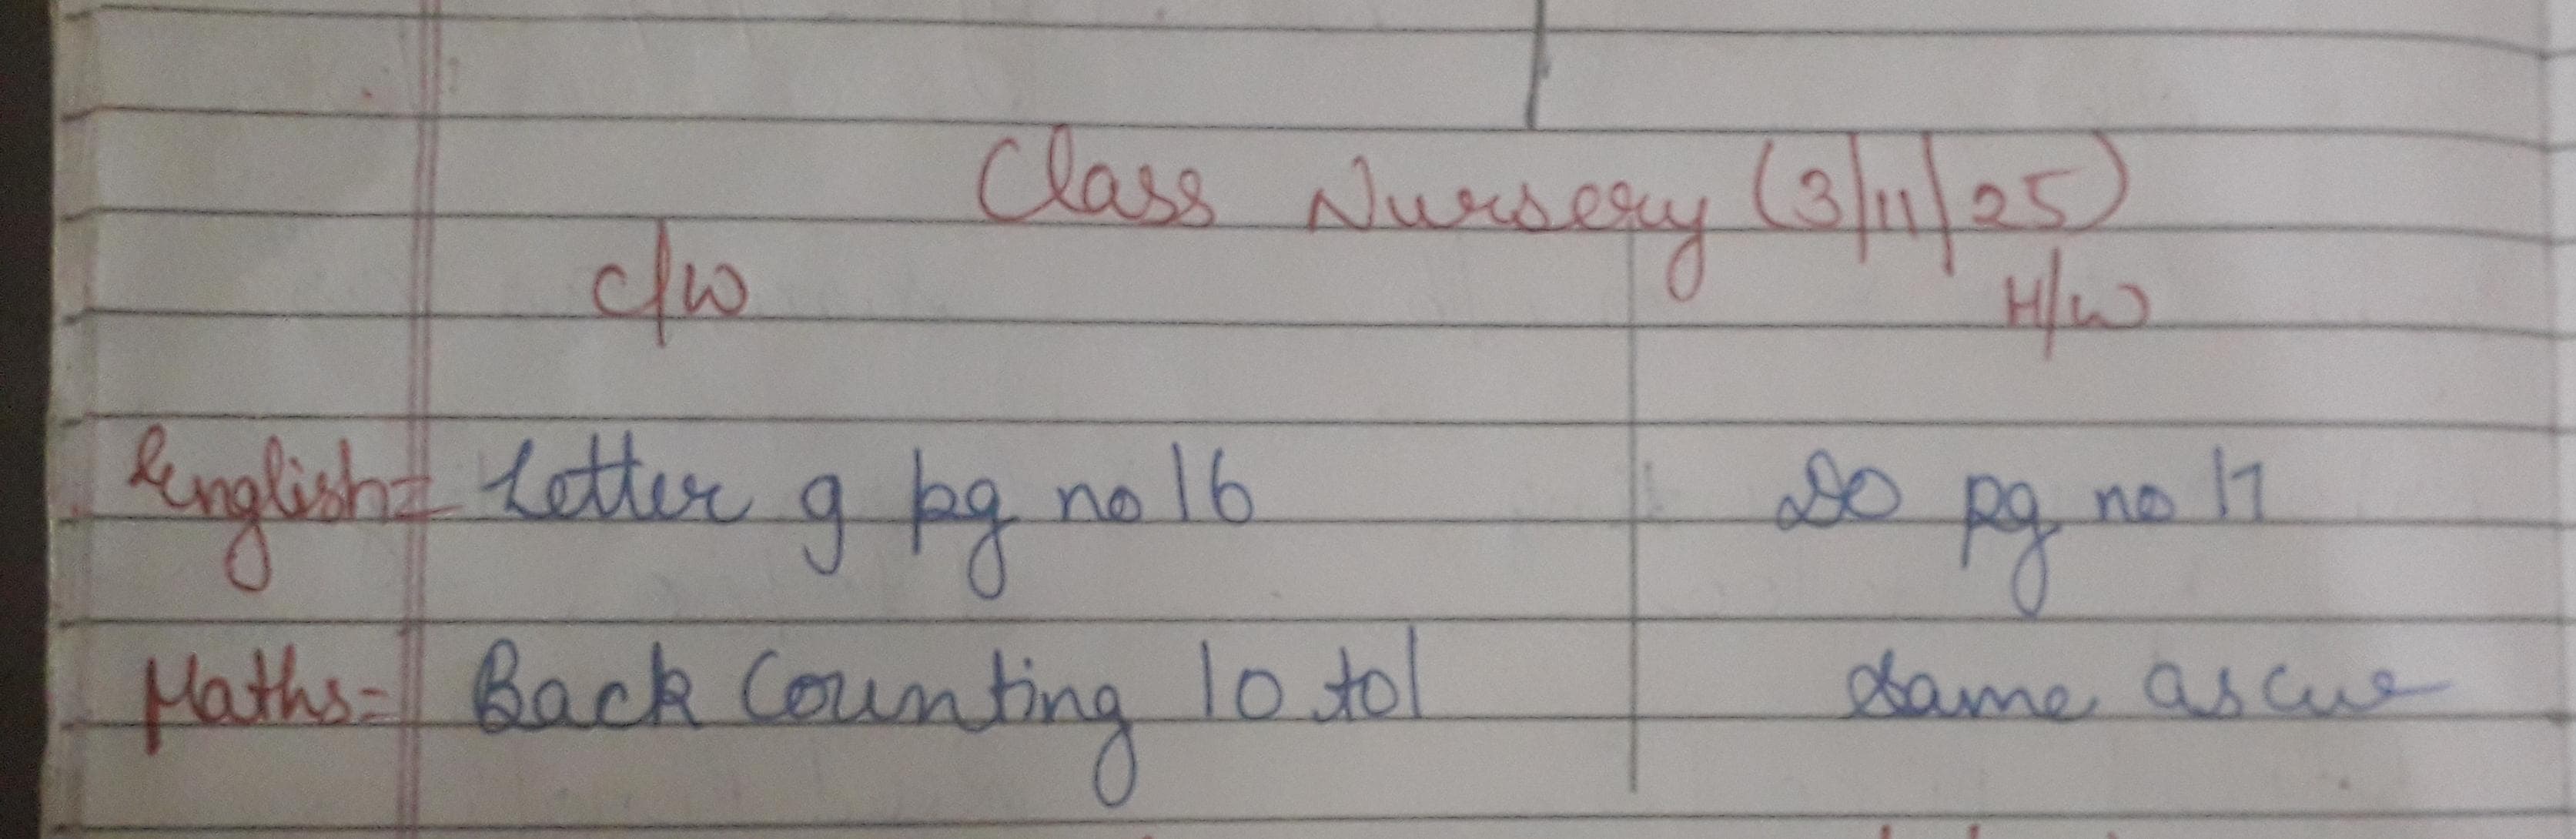 Class Nursery (3/11/25)
C/W H/W
English= Letter g pg no 16 Do pg no 17
Maths= Back Counting 10 to 1 Same as cw